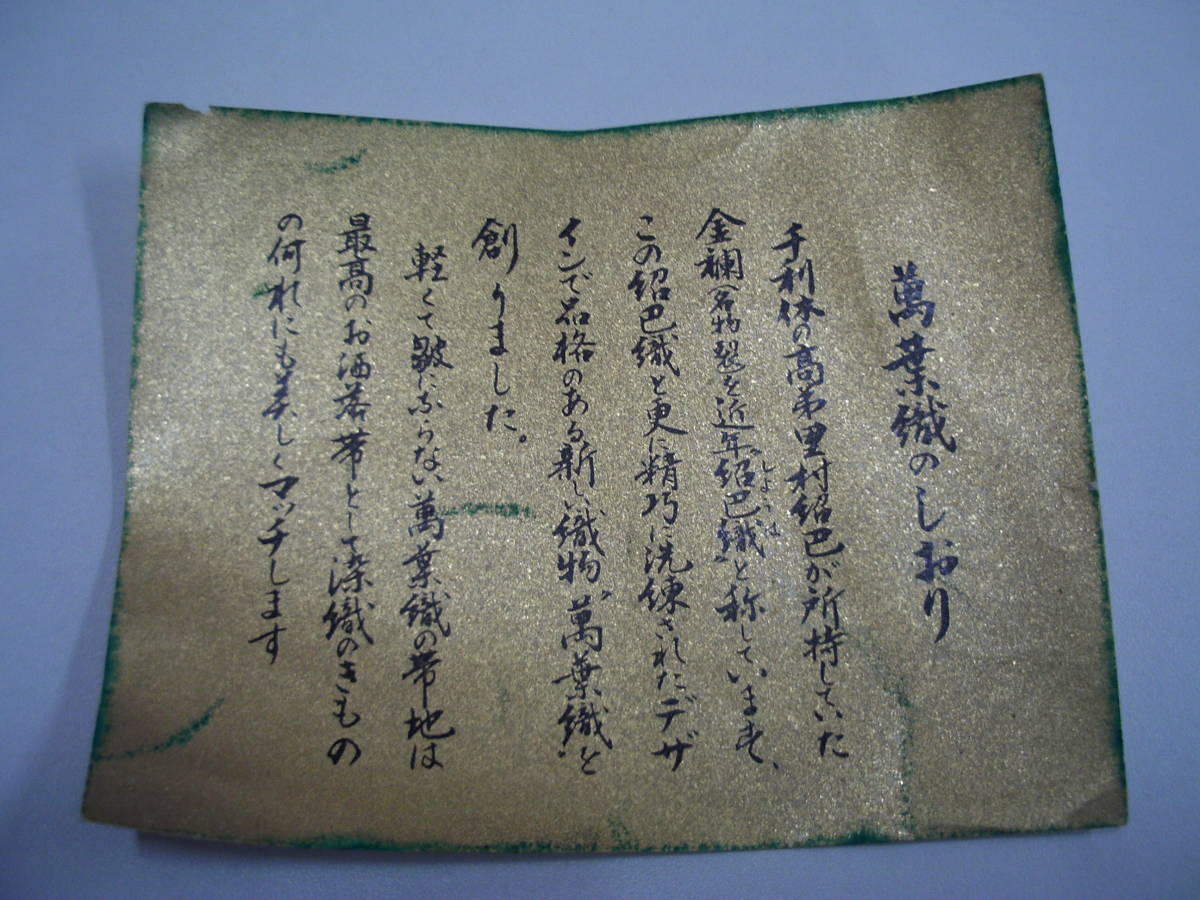 萬葉織のしおり
千利休の高弟里村紹巴が所持していた
金襴(名物裂を近年紹巴織と称しています、
しようは
この紹巴織を更に精巧に洗練されたデザ
インで品格のある新しい織物“萬葉織”を
創りました。
軽くて皺にならない萬葉織の帯地は
最高のお洒落帯として染織のきもの
の何れにも美しくマッチします